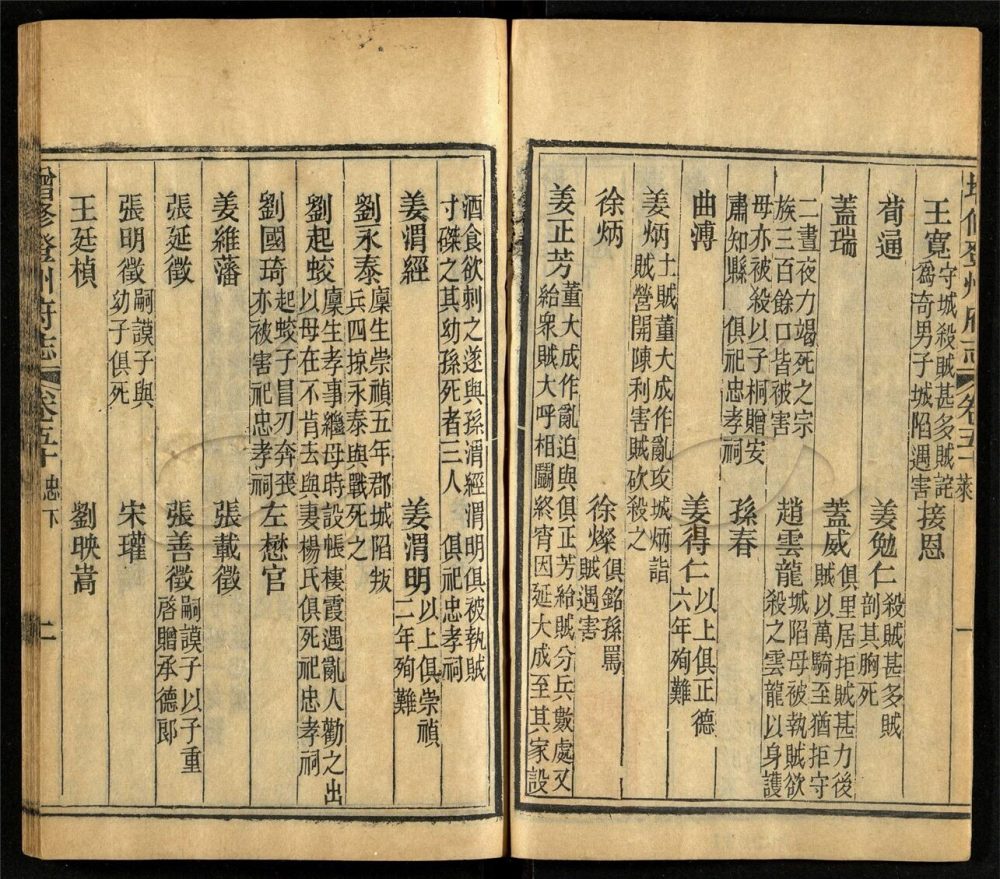 王寬
守城殺賊甚多賊詫
為奇男子城陷遇害
接恩
荀通
姜勉仁
殺賊甚多賊
剖其胸死
蓋瑞
蓋威
俱里居拒賊甚力後
賊以萬騎至猶拒守
二晝夜力竭死之宗
族三百餘口皆被害
趙雲龍
城陷母被執賊欲
殺之雲龍以身護
母亦被殺以子桐贈安
肅知縣 俱祀忠孝祠
孫春
曲溥
姜得仁
以上俱正德
六年殉難
姜炳
土賊董大成作亂攻城炳詣
賊營開陳利害賊砍殺之
徐炳
徐燦
俱銘孫罵
賊遇害
姜正芳
董大成作亂迫與俱正芳給賊分兵數處又
給眾賊大呼相鬭終宵因延大成至其家設
酒食欲刺之遂與孫渭經渭明俱被執賊
寸磔之其幼孫死者三人 俱祀忠孝祠
姜渭經
姜渭明
以上俱崇禎
二年殉難
劉永泰
廩生崇禎五年郡城陷叛
兵四掠永泰與戰死之
劉起蛟
廩生孝事繼母時設帳棲霞遇亂人勸之出
以母在不肯去與妻楊氏俱死祀忠孝祠
劉國琦
起蛟子冒刃奔喪
亦被害祀忠孝祠
左懋官
姜維藩
張載徵
張延徵
張善徵
嗣謨子以子重
啓贈承德郎
張明徵
嗣謨子與
幼子俱死
宋瓘
王廷楨
劉映嵩
增修登州府志 卷五十 忠下 二